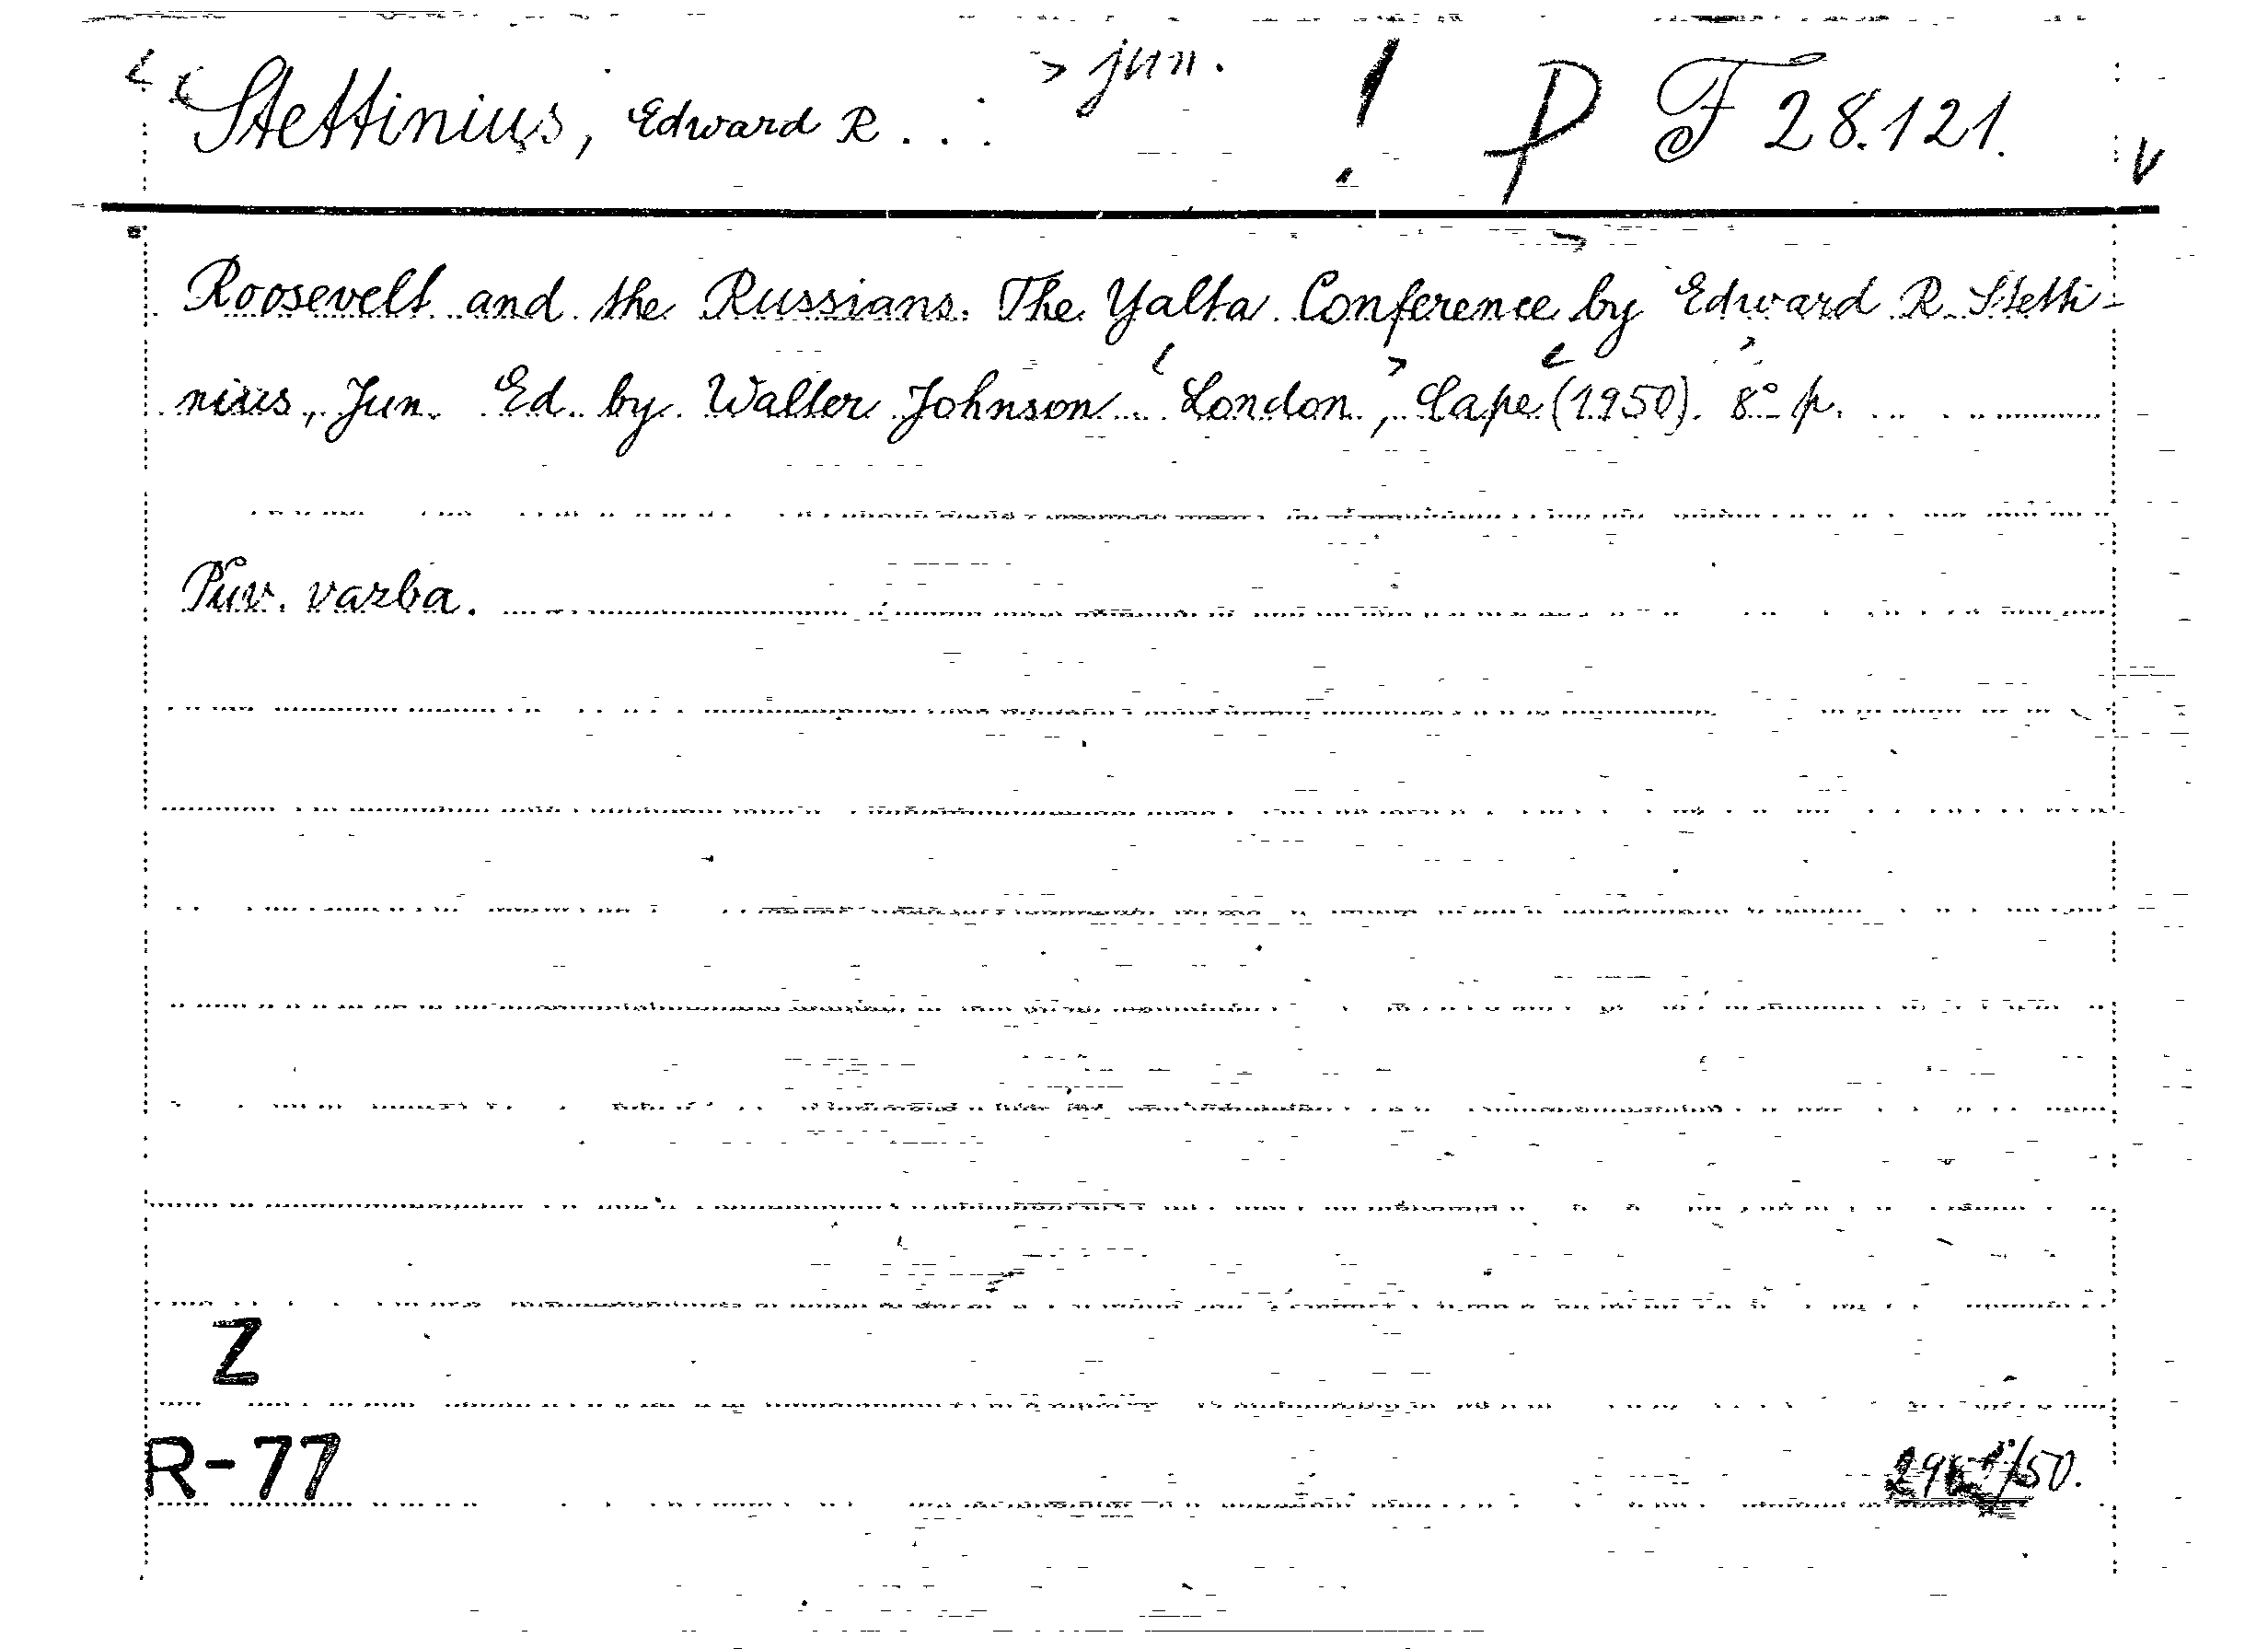 Stettinius, Edward R. . . jun. ! P F 28.121. v
Roosevelt and the Russians. The Yalta Conference by Edward R. Stetti-
nius, Jun. Ed. by Walter Johnson... London, Cape (1950). 8° p.
Pův. vazba.
Z
R-77
/50.